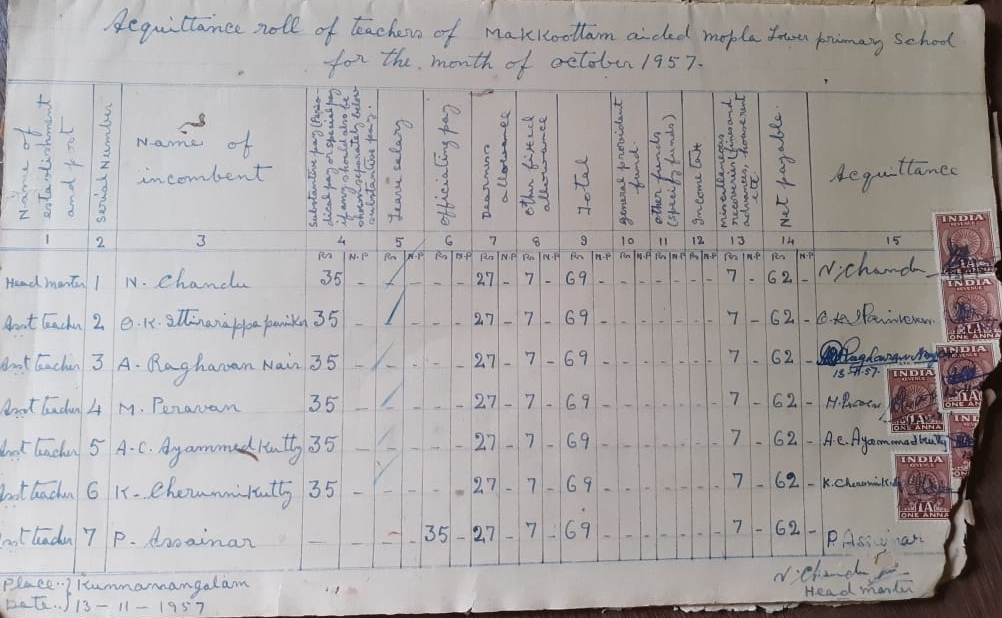 Acquittance roll of teachers of Makkoottam aided mopla Lower primary School
for the month of october 1957.
Name of establishment and post
Serial Number
Name of incombent
Substantive pay (Perso-
dical pay or special pay
if any should also be
shown separately below
substantive pay.
Leave salary
officiating pay
Dearness allowance
other fixed allowance
Total
general provident fund.
other funds (specify funds)
Income tax
miscellaneous recoveries, fines and advances, house rent etc.
Net payable.
Acquittance
1 2 3 4 5 6 7 8 9 10 11 12 13 14 15
Rs N.P Rs N.P Rs N.P Rs N.P Rs N.P Rs N.P Rs N.P Rs N.P Rs N.P Rs N.P Rs N.P
Head master 1 N. Chandu 35 - - - - 27 - 7 - 69 - - - - - - - 7 - 62 - N. Chandu
Asst teacher 2 O.K. Ittirarappa panikar 35 - - - - 27 - 7 - 69 - - - - - - - 7 - 62 -
Asst teacher 3 A. Raghavan Nair 35 - - - - 27 - 7 - 69 - - - - - - - 7 - 62 - Raghavan
13-11-57.
Asst teacher 4 M. Peravan 35 - - - - 27 - 7 - 69 - - - - - - - 7 - 62 -
Asst teacher 5 A.C. Ayammed Kutty 35 - - - - 27 - 7 - 69 - - - - - - - 7 - 62 - A.C. Ayammad kutty
Asst teacher 6 K. Cherunnikutty 35 - - - - 27 - 7 - 69 - - - - - - - 7 - 62 -
Asst teacher 7 P. Assainar - - - - 35 - 27 - 7 - 69 - - - - - - - 7 - 62 - P. Assainar
Place..} Kunnamangalam
Date..} 13-11-1957
N. Chandu
Head master
INDIA
REVENUE
INDIA
REVENUE
1A
INDIA
REVENUE
INDIA
REVENUE
1A
ONE ANNA
INDIA
REVENUE
1A
ONE ANNA